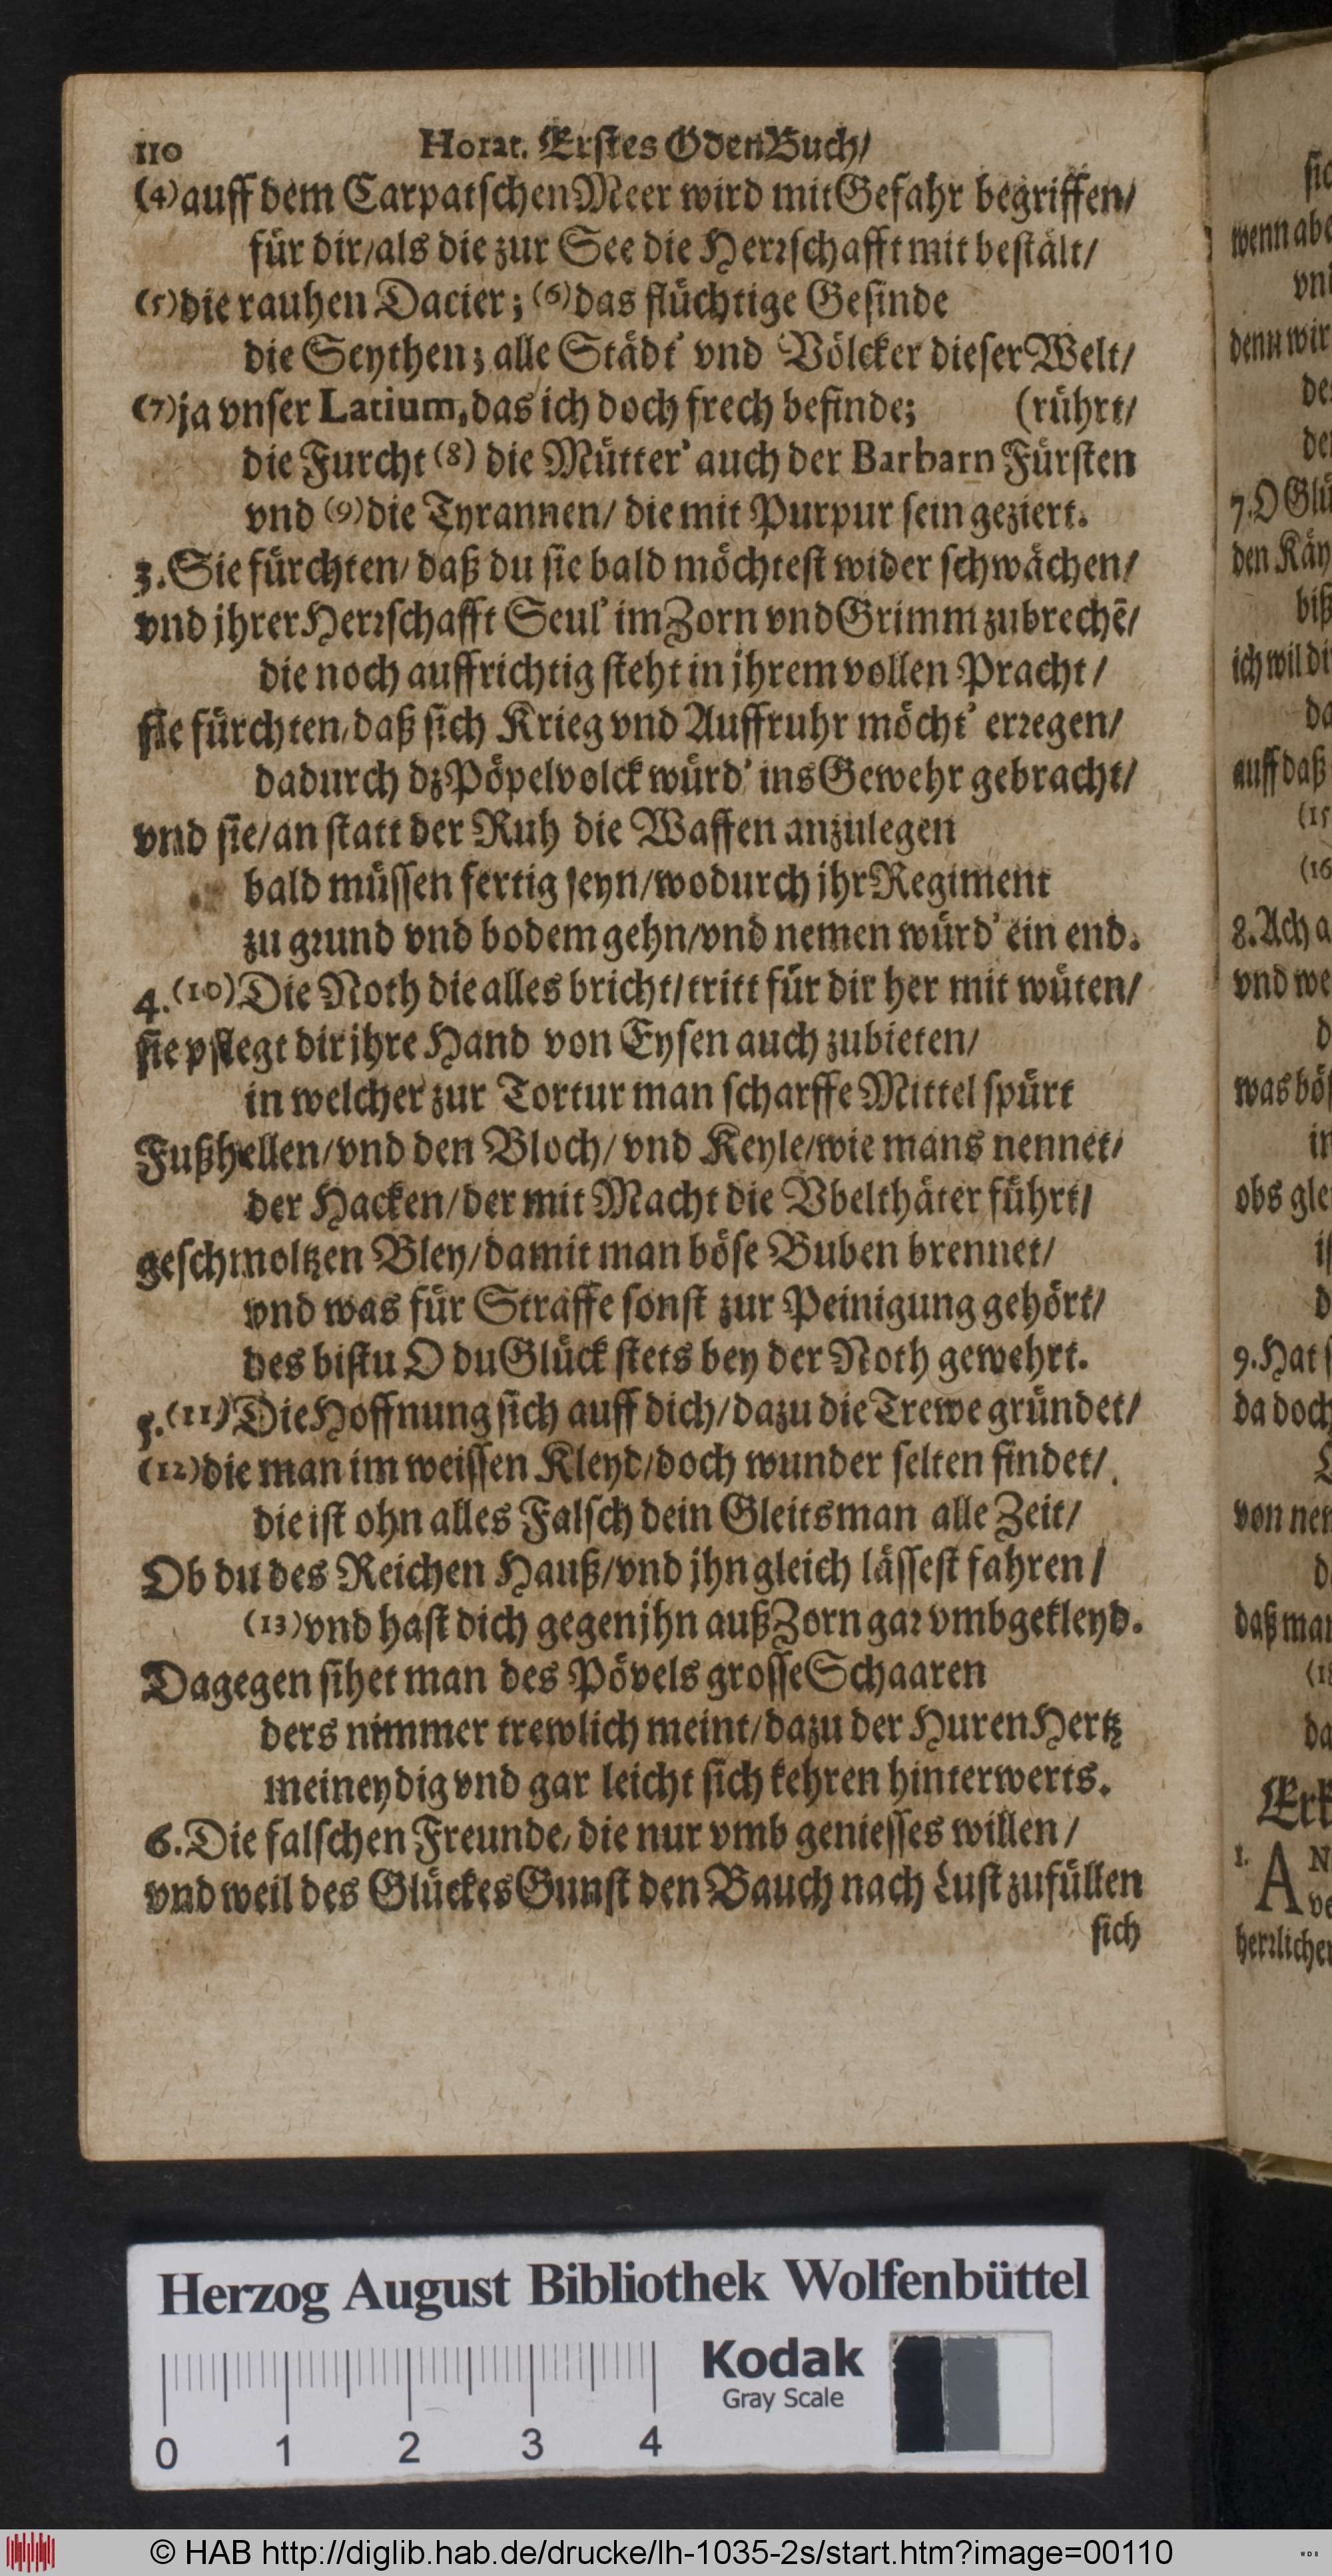 110 Horat. Erstes OdenBuch/
(4)auff dem CarpatschenMeer wird mit Gefahr begriffen/
für dir/als die zur See die Herrschafft mit bestält/
(5)die rauhen Dacier; (6)das flüchtige Gesinde
die Scythen; alle Städt' vnd Völcker dieser Welt/
(7)ja vnser Latium, das ich doch frech befinde; (rührt/
die Furcht (8) die Mütter' auch der Barbarn Fürsten
vnd (9)die Tyrannen/ die mit Purpur sein geziert.
3. Sie fürchten/ daß du sie bald möchtest wider schwächen/
vnd jhrer Herrschafft Seul' im Zorn vnd Grimm zubrechē/
die noch auffrichtig steht in jhrem vollen Pracht/
sie fürchten/daß sich Krieg vnd Auffruhr möcht' erregen/
dadurch dz Pöpelvolck würd' ins Gewehr gebracht/
vnd sie/an statt der Ruh die Waffen anzulegen
bald müssen fertig seyn/wodurch jhr Regiment
zu grund vnd bodem gehn/vnd nemen würd' ein end.
4. (10)Die Noth die alles bricht/tritt für dir her mit wüten/
sie pflegt dir jhre Hand von Eysen auch zubieten/
in welcher zur Tortur man scharffe Mittel spürt
Fußhellen/vnd den Bloch/ vnd Keyle/wie mans nennet/
der Hacken/der mit Macht die Vbelthäter führt/
geschmoltzen Bley/damit man böse Buben brennet/
vnd was für Straffe sonst zur Peinigung gehört/
des bistu O du Glück stets bey der Noth gewehrt.
5. (11)Die Hoffnung sich auff dich/dazu die Trewe gründet/
(12)die man im weissen Kleyd/doch wunder selten findet/
die ist ohn alles Falsch dein Gleitsman alle Zeit/
Ob du des Reichen Hauß/vnd jhn gleich lässest fahren/
(13)vnd hast dich gegen jhn auß Zorn gar vmbgekleyd.
Dagegen sihet man des Pövels grosse Schaaren
ders nimmer trewlich meint/dazu der Huren Hertz
meineydig vnd gar leicht sich kehren hinterwerts.
6. Die falschen Freunde/ die nur vmb geniesses willen/
vnd weil des Glückes Gunst den Bauch nach Lust zufüllen
sich
wenn
denn wir
7. O
8. Ach
vnd
9. Hat
da doch
Herzog August Bibliothek Wolfenbüttel
Kodak
Gray Scale
0 1 2 3 4
© HAB http://diglib.hab.de/drucke/lh-1035-2s/start.htm?image=00110